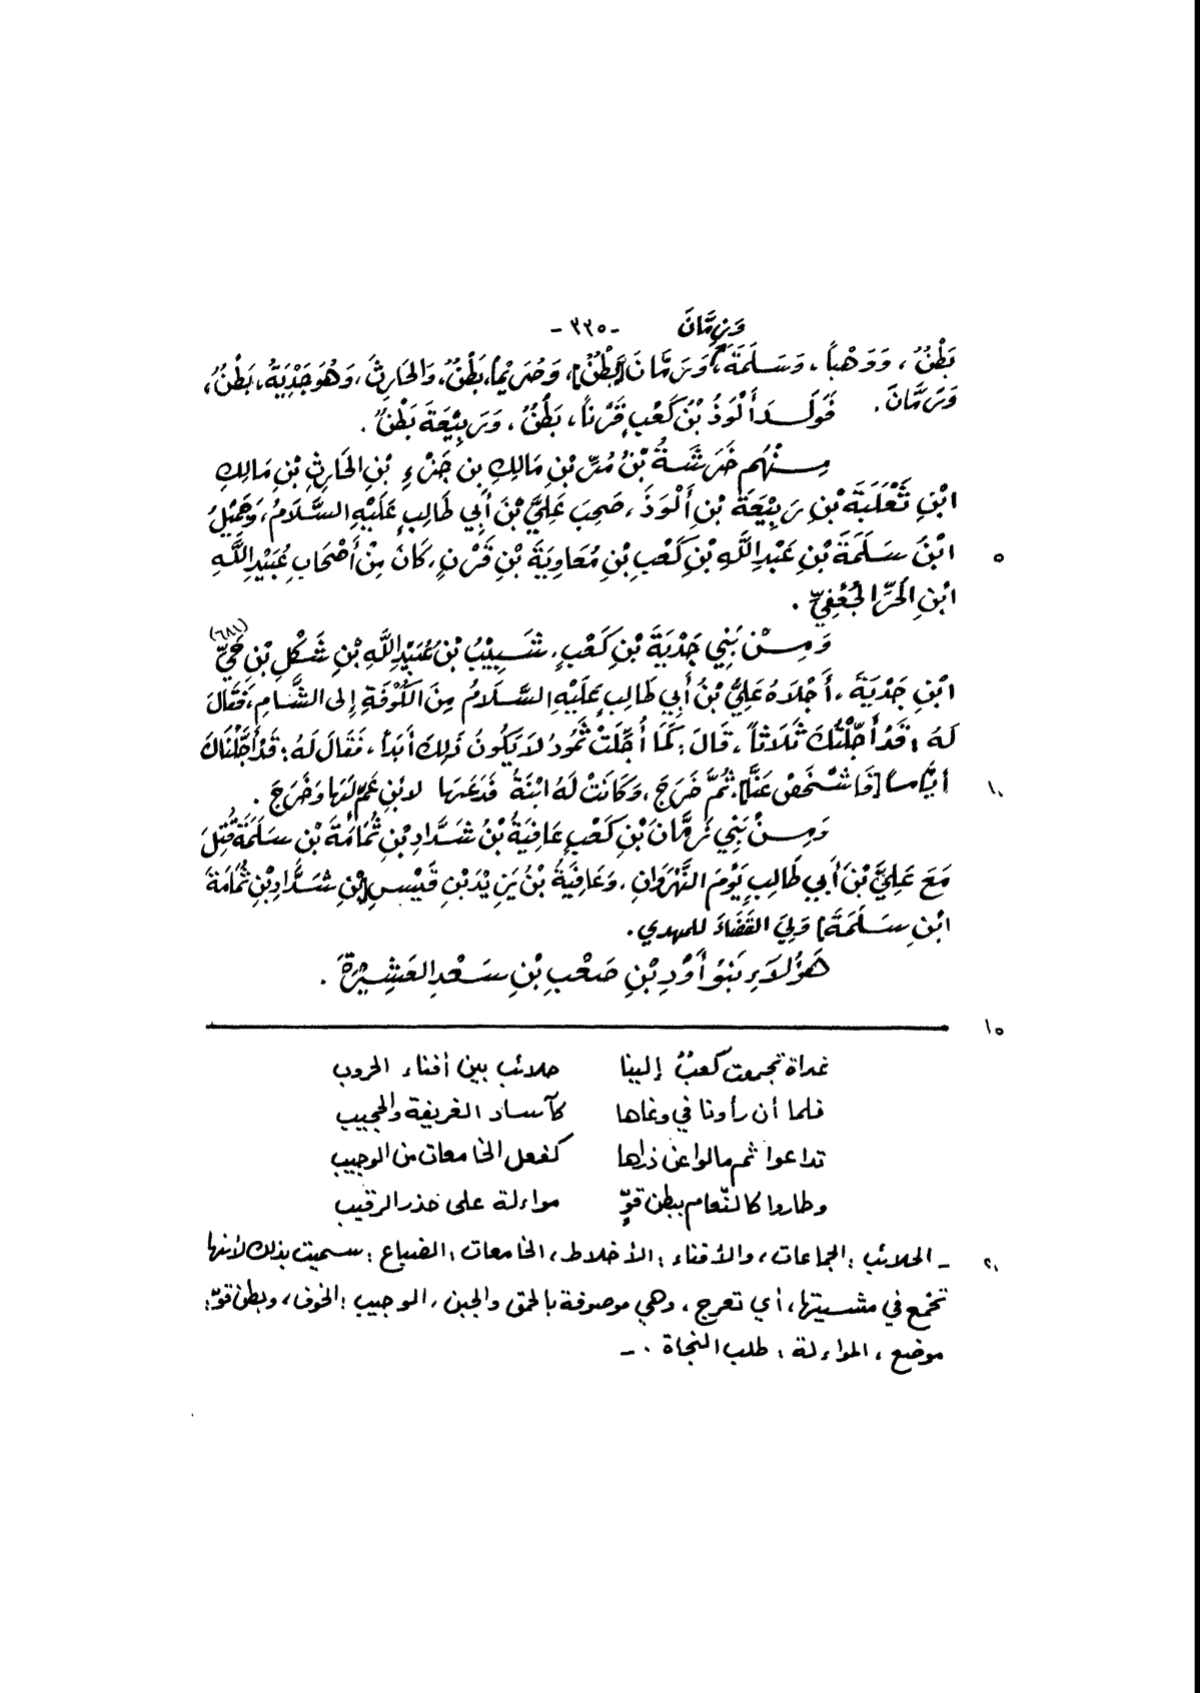 وَرِمَّانَ -٣٣٥-
بَطْنٌ، وَوَهْباً، وَسَلَمَةَ، وَرِمَّانَ [بَطْنٌ]، وَصُرَيْماً، بَطْنٌ، وَالحَارِثَ، وَهُوَ جَدْيَةُ، بَطْنٌ،
وَرِمَّانَ. فَوَلَدَ أَلْوَذُ بْنُ كَعْبٍ قَرْناً، بَطْنٌ، وَرَبِيْعَةَ بَطْنٌ.
مِنْهُم خَرَشَةُ بْنُ مُرِّ بْنِ مَالِكِ بْنِ جَزْءِ بْنِ الحَارِثِ بْنِ مَالِكِ
ابْنِ ثَعْلَبَةَ بْنِ رَبِيْعَةَ بْنِ أَلْوَذَ، صَحِبَ عَلِيَّ بْنَ أَبِي طَالِبٍ عَلَيْهِ السَّلَامُ، وَجَمِيْلُ
ابْنُ سَلَمَةَ بْنِ عَبْدِ اللَّهِ بْنِ كَعْبِ بْنِ مُعَاوِيَةَ بْنِ قَرْنٍ، كَانَ مِنْ أَصْحَابِ عُبَيْدِ اللَّهِ ٥
ابْنِ الحُرِّ الجُعْفِيِّ.
وَمِنْ بَنِي جَدْيَةَ بْنِ كَعْبٍ، شَبِيْبُ بْنُ عُبَيْدِ اللَّهِ بْنِ شَكْلِ بْنِ حَيِّ (٦٨١)
ابْنِ جَدْيَةَ، أَجْلَاهُ عَلِيُّ بْنُ أَبِي طَالِبٍ عَلَيْهِ السَّلَامُ مِنَ الكُوْفَةِ إِلى الشَّامِ، فَقَالَ
لَهُ: قَدْ أَجَّلْتُكَ ثَلَاثاً، قَالَ: كَمَا أُجِّلَتْ ثَمُودُ لَا يَكُونُ ذَلِكَ أَبَداً، فَقَالَ لَهُ: قَدْ أَجَّلْنَاكَ
أَيَّاماً [فَاشْخَصْ عَنَّا]. ثُمَّ خَرَجَ، وَكَانَتْ لَهُ ابْنَةٌ فَدَعَهَا لابْنِ عَمٍّ لَهَا وَخَرَجَ. ١٠
وَمِنْ بَنِي زِمَّانَ بْنِ كَعْبٍ عَافِيَةُ بْنُ شَدَّادِ بْنِ ثُمَامَةَ بْنِ سَلَمَةَ قُتِلَ
مَعَ عَلِيِّ بْنِ أَبِي طَالِبٍ يَوْمَ النَّهْرَوَانِ، وَعَافِيَةُ بْنُ يَزِيْدَ بْنِ قَيْسِ [بْنِ شَدَّادِ بْنِ ثُمَامَةَ
ابْنِ سَلَمَةَ] وَلِيَ القَضَاءَ للمهدي.
هَؤُلَاءِ بَنُو أَوْدِ بْنِ صَعْبِ بْنِ سَعْدِ العَشِيْرَةَ.
١٥
غداة تجمعت كعبٌ إلينا حلائب بين أفناء الحروب
فلما أن رأونا في وغاها كآساد الغريفة والحجيب
تداعوا ثم مالوا عن ذراها كفعل الخامعات من الوجيب
وطاروا كالنّعام ببطن قوٍّ مواءلة على حذر الرقيب
ـ الحلائب: الجماعات، والأفناء: الأخلاط، الخامعات: الضباع: سميت بذلك لأنها ٢٠
تخمع في مشيتها، أي تعرج، وهي موصوفة بالحمق والجبن، الوجيب: الخوف، وبطن قوّ:
موضع، المواءلة: طلب النجاة. ـ